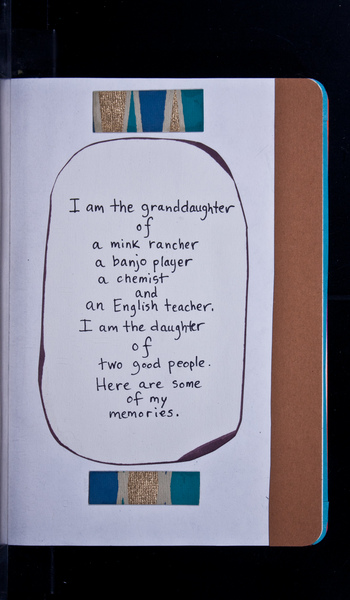 I am the granddaughter
of
a mink rancher
a banjo player
a chemist
and
an English teacher.
I am the daughter
of
two good people.
Here are some
of my
memories.